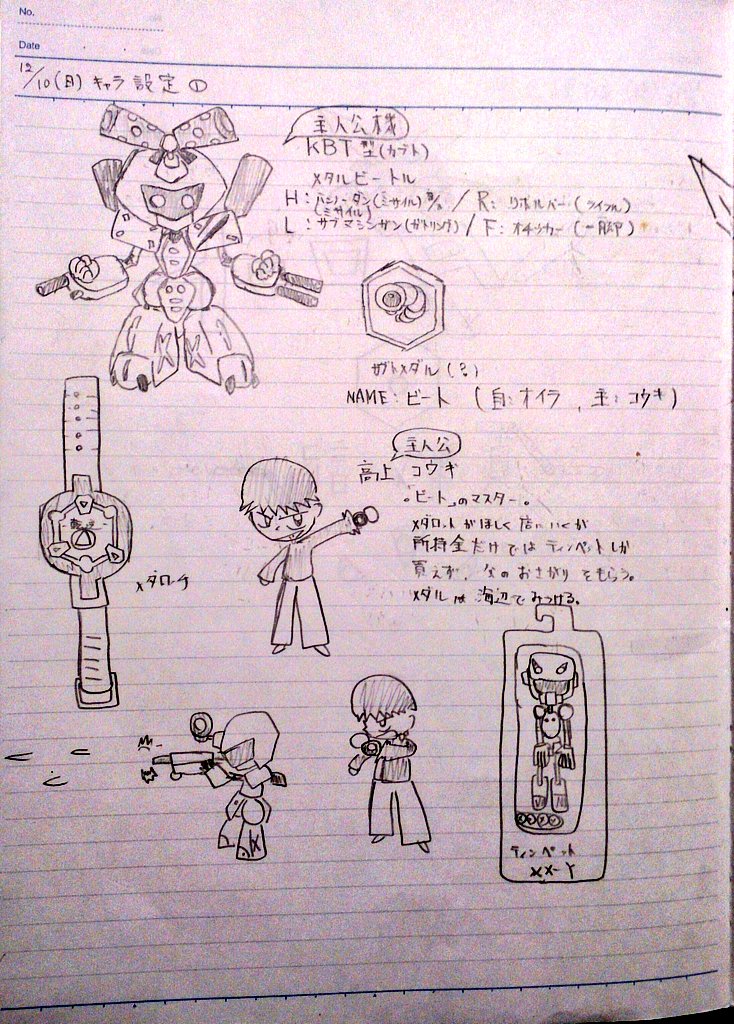 No.
Date
12/10(日) キャラ設定①
主人公機
KBT型(カブト)
メタルビートル
H: (ミサイル) / R: リボルバー(ライフル)
(ミサイル)
L: サブマシンガン(ガトリング) / F: オチツカー(一脚)
カブトメダル(?)
NAME: ビート (自: オイラ, 主: コウキ)
主人公
高上 コウキ
「ビート」のマスター。
メダロットがほしく店にいくが
所持金だけではティンペットしか
買えず、父のおさがりをもらう。
メダルは海辺でみつける。
メダロッチ
ティンペット
XX-Y